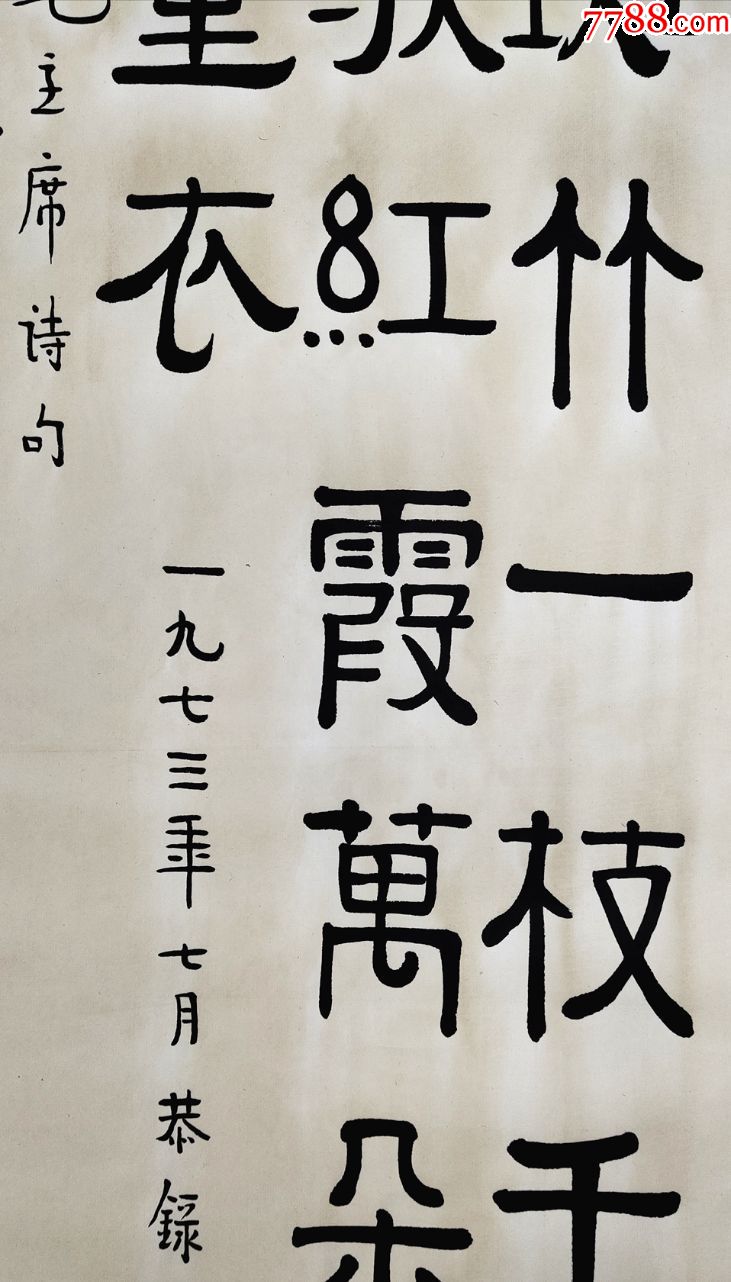 竹一枝千
紅霞萬朵
衣
一九七三年七月恭録
主席诗句
7788.com